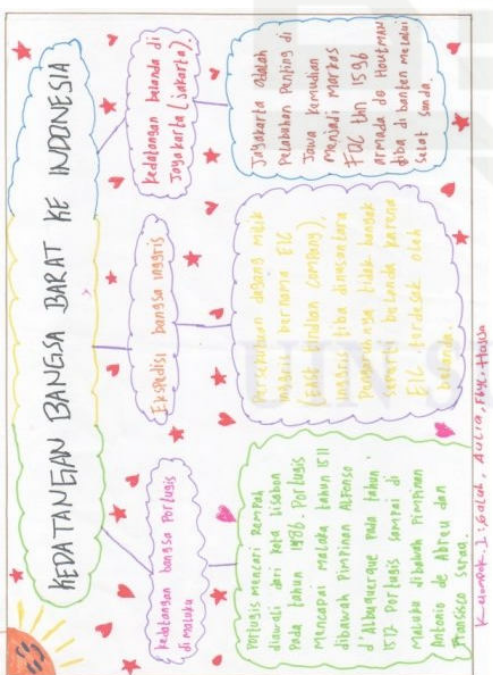 KEDATANGAN BANGSA BARAT KE INDONESIA
kedatangan bangsa Portugis
di maluku
Ekspedisi bangsa inggris
kedatangan belanda di
Jayakarta (jakarta).
Portugis mencari rempah
diawati dari kota lisabon
Pada tahun 1486. Portugis
mencapai malaka tahun 1511
dibawah Pimpinan Alfonso
d'Albuquerque Pada tahun
1512 Portugis sampai di
Maluku dibawah Pimpinan
Antonio de Abreu dan
Fransisco serao.
Persekutuan dagang milik
inggris bernama EIC
(EAST indian company).
inggris tiba dinusantara
Pengaruhnya tidak banyak
seperti belanda karena
EIC terdesak oleh
belanda.
Jayakarta adalah
Pelabuhan Penting di
Jawa kemudian
menjadi markas
thn 1596
armada de Houtman
tiba di banten melalui
selat sunda.
Kelompok. 1: Galuh, Aulia, Feby, Hassa
UIN S